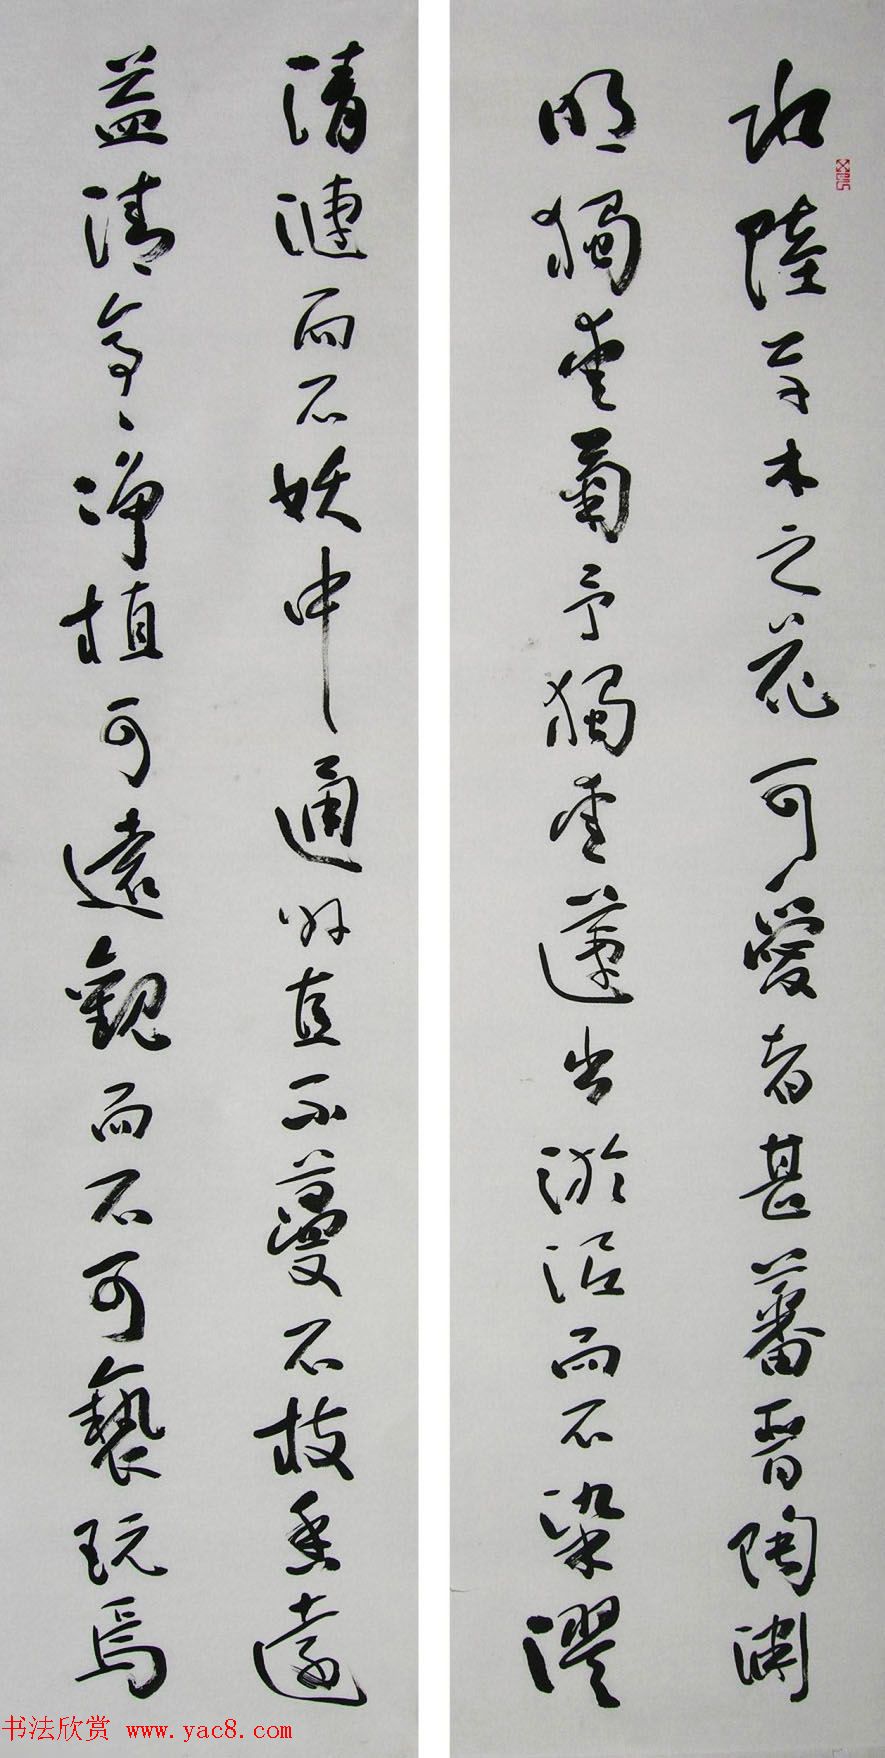 水陸草木之花可愛者甚蕃晋陶渊
明獨愛菊予獨愛蓮出淤泥而不染濯
清漣而不妖中通外直不蔓不枝香遠
益清亭〻净植可遠觀而不可褻玩焉
书法欣赏 www.yac8.com